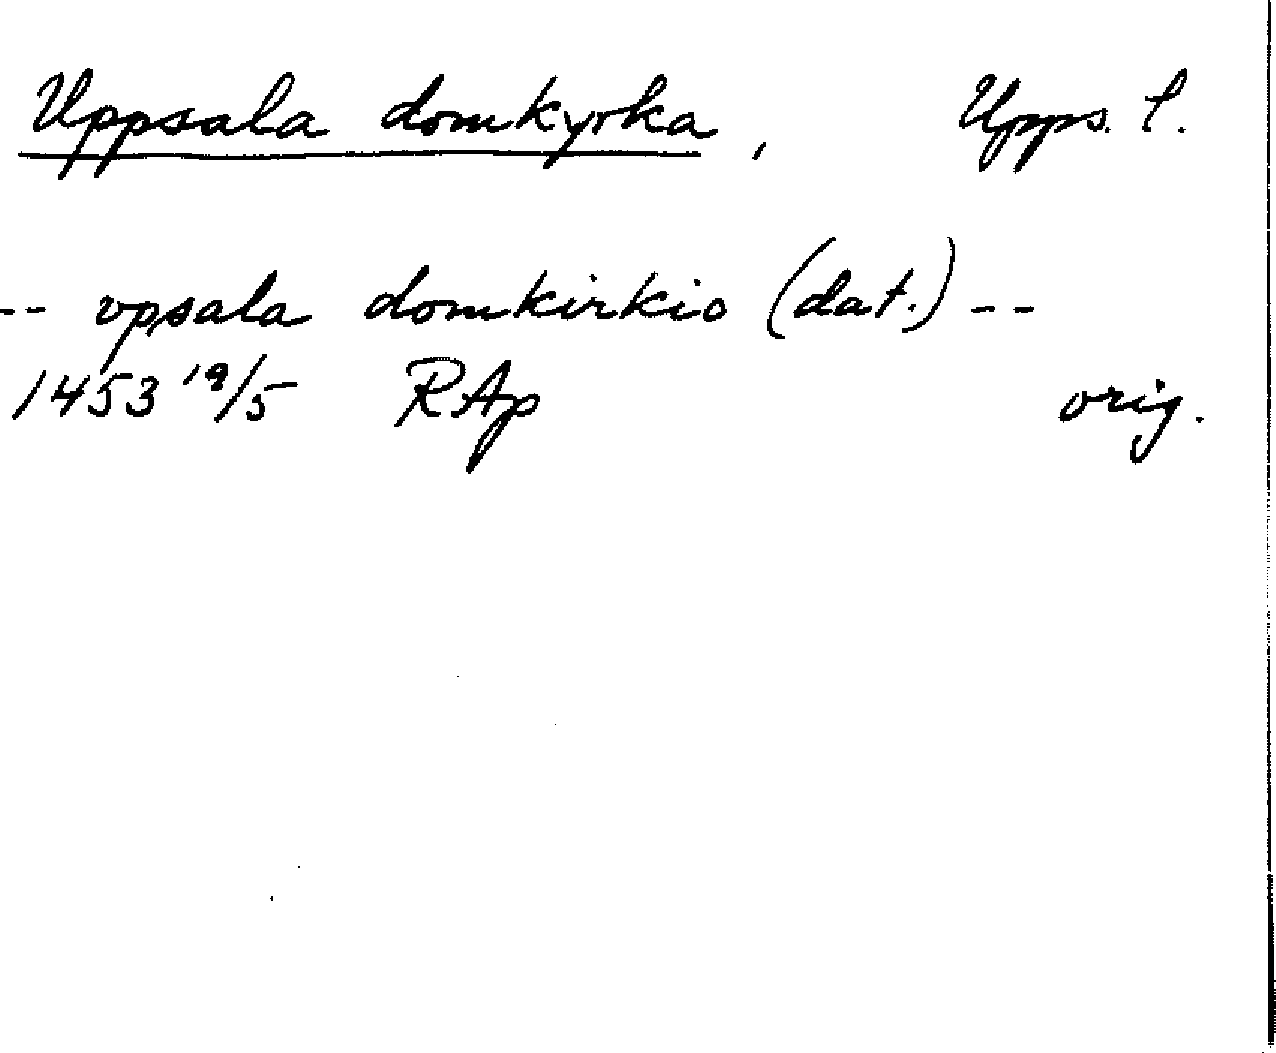 Uppsala domkyrka, Upps. l.
-- vpsala domkirkio (dat.) --
1453 19/5 RAp orig.